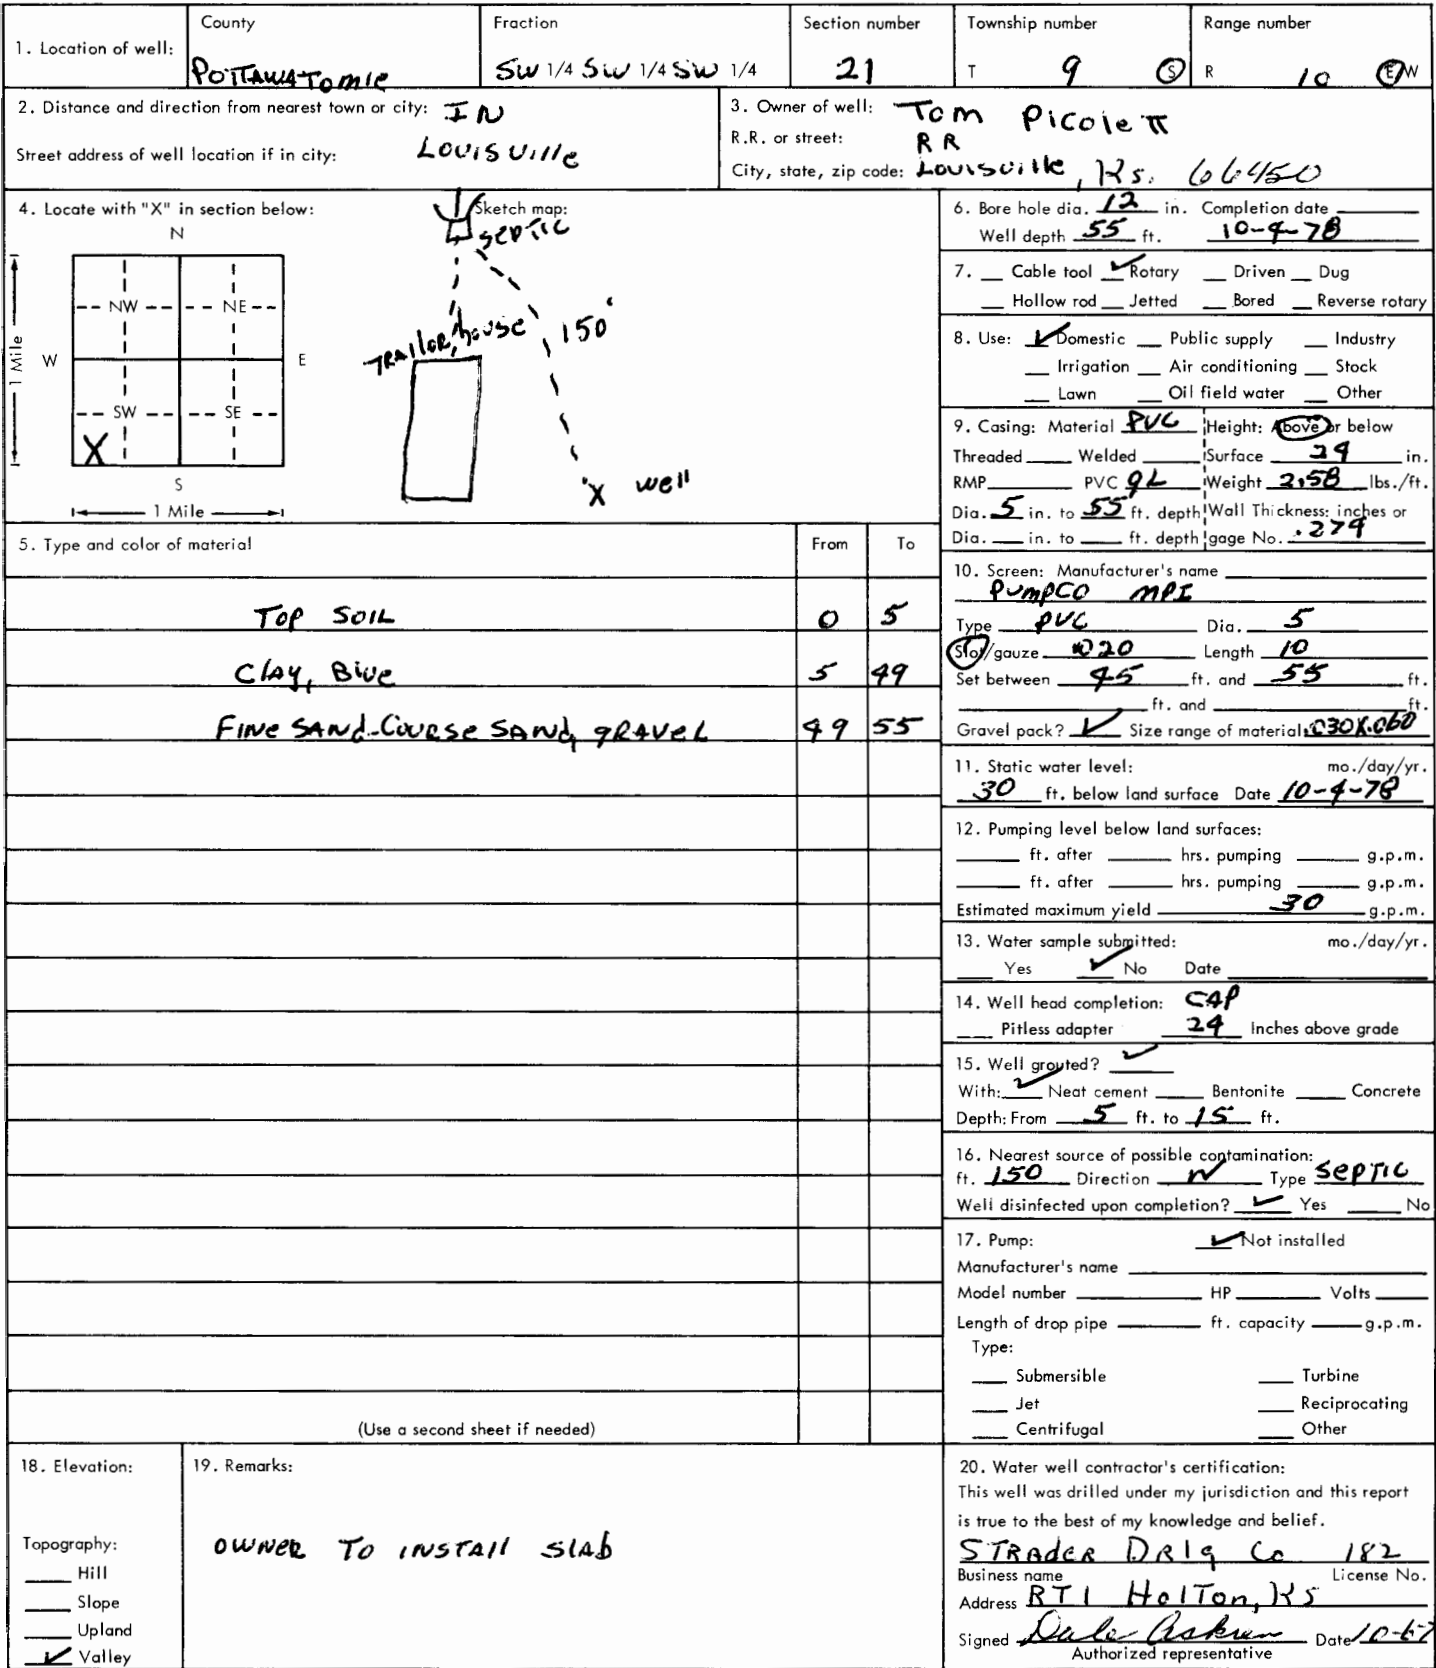 1. Location of well:
County
POTTAWATOMIE
Fraction
SW 1/4 SW 1/4 SW 1/4
Section number
21
Township number
T 9 S
Range number
R 10 E/W
2. Distance and direction from nearest town or city: IN
Street address of well location if in city: LOUISVILLE
3. Owner of well: Tom Picolett
R.R. or street: RR
City, state, zip code: Louisville, Ks. 66450
4. Locate with "X" in section below:
N
NW NE
W E
1 Mile
SW SE
X
S
1 Mile
Sketch map:
SEPTIC
TRAILOR house
150'
X well
5. Type and color of material From To
TOP SOIL 0 5
CLAY, BLUE 5 49
FINE SAND-COURSE SAND, gRAVEL 49 55
(Use a second sheet if needed)
6. Bore hole dia. 12 in. Completion date
Well depth 55 ft. 10-4-78
7. Cable tool ✓ Rotary Driven Dug
Hollow rod Jetted Bored Reverse rotary
8. Use: ✓ Domestic Public supply Industry
Irrigation Air conditioning Stock
Lawn Oil field water Other
9. Casing: Material PVC Height: Above or below
Threaded Welded Surface 24 in.
RMP PVC gL Weight 2.58 lbs./ft.
Dia. 5 in. to 55 ft. depth Wall Thickness: inches or
Dia. in. to ft. depth gage No. .279
10. Screen: Manufacturer's name
PUMPCO MPI
Type PVC Dia. 5
Slot/gauze .020 Length 10
Set between 45 ft. and 55 ft.
ft. and ft.
Gravel pack? ✓ Size range of material .030X.060
11. Static water level: mo./day/yr.
30 ft. below land surface Date 10-4-78
12. Pumping level below land surfaces:
ft. after hrs. pumping g.p.m.
ft. after hrs. pumping g.p.m.
Estimated maximum yield 30 g.p.m.
13. Water sample submitted: mo./day/yr.
Yes ✓ No Date
14. Well head completion: CAP
Pitless adapter 24 Inches above grade
15. Well grouted? ✓
With: ✓ Neat cement Bentonite Concrete
Depth: From 5 ft. to 15 ft.
16. Nearest source of possible contamination:
ft. 150 Direction N Type SEPTIC
Well disinfected upon completion? ✓ Yes No
17. Pump: ✓ Not installed
Manufacturer's name
Model number HP Volts
Length of drop pipe ft. capacity g.p.m.
Type:
Submersible Turbine
Jet Reciprocating
Centrifugal Other
18. Elevation:
Topography:
Hill
Slope
Upland
✓ Valley
19. Remarks:
OWNER TO INSTALL SLAB
20. Water well contractor's certification:
This well was drilled under my jurisdiction and this report
is true to the best of my knowledge and belief.
STRADER DRLg Co 182
Business name License No.
Address RT1 HolTon, KS
Signed Dale Askren Date
Authorized representative